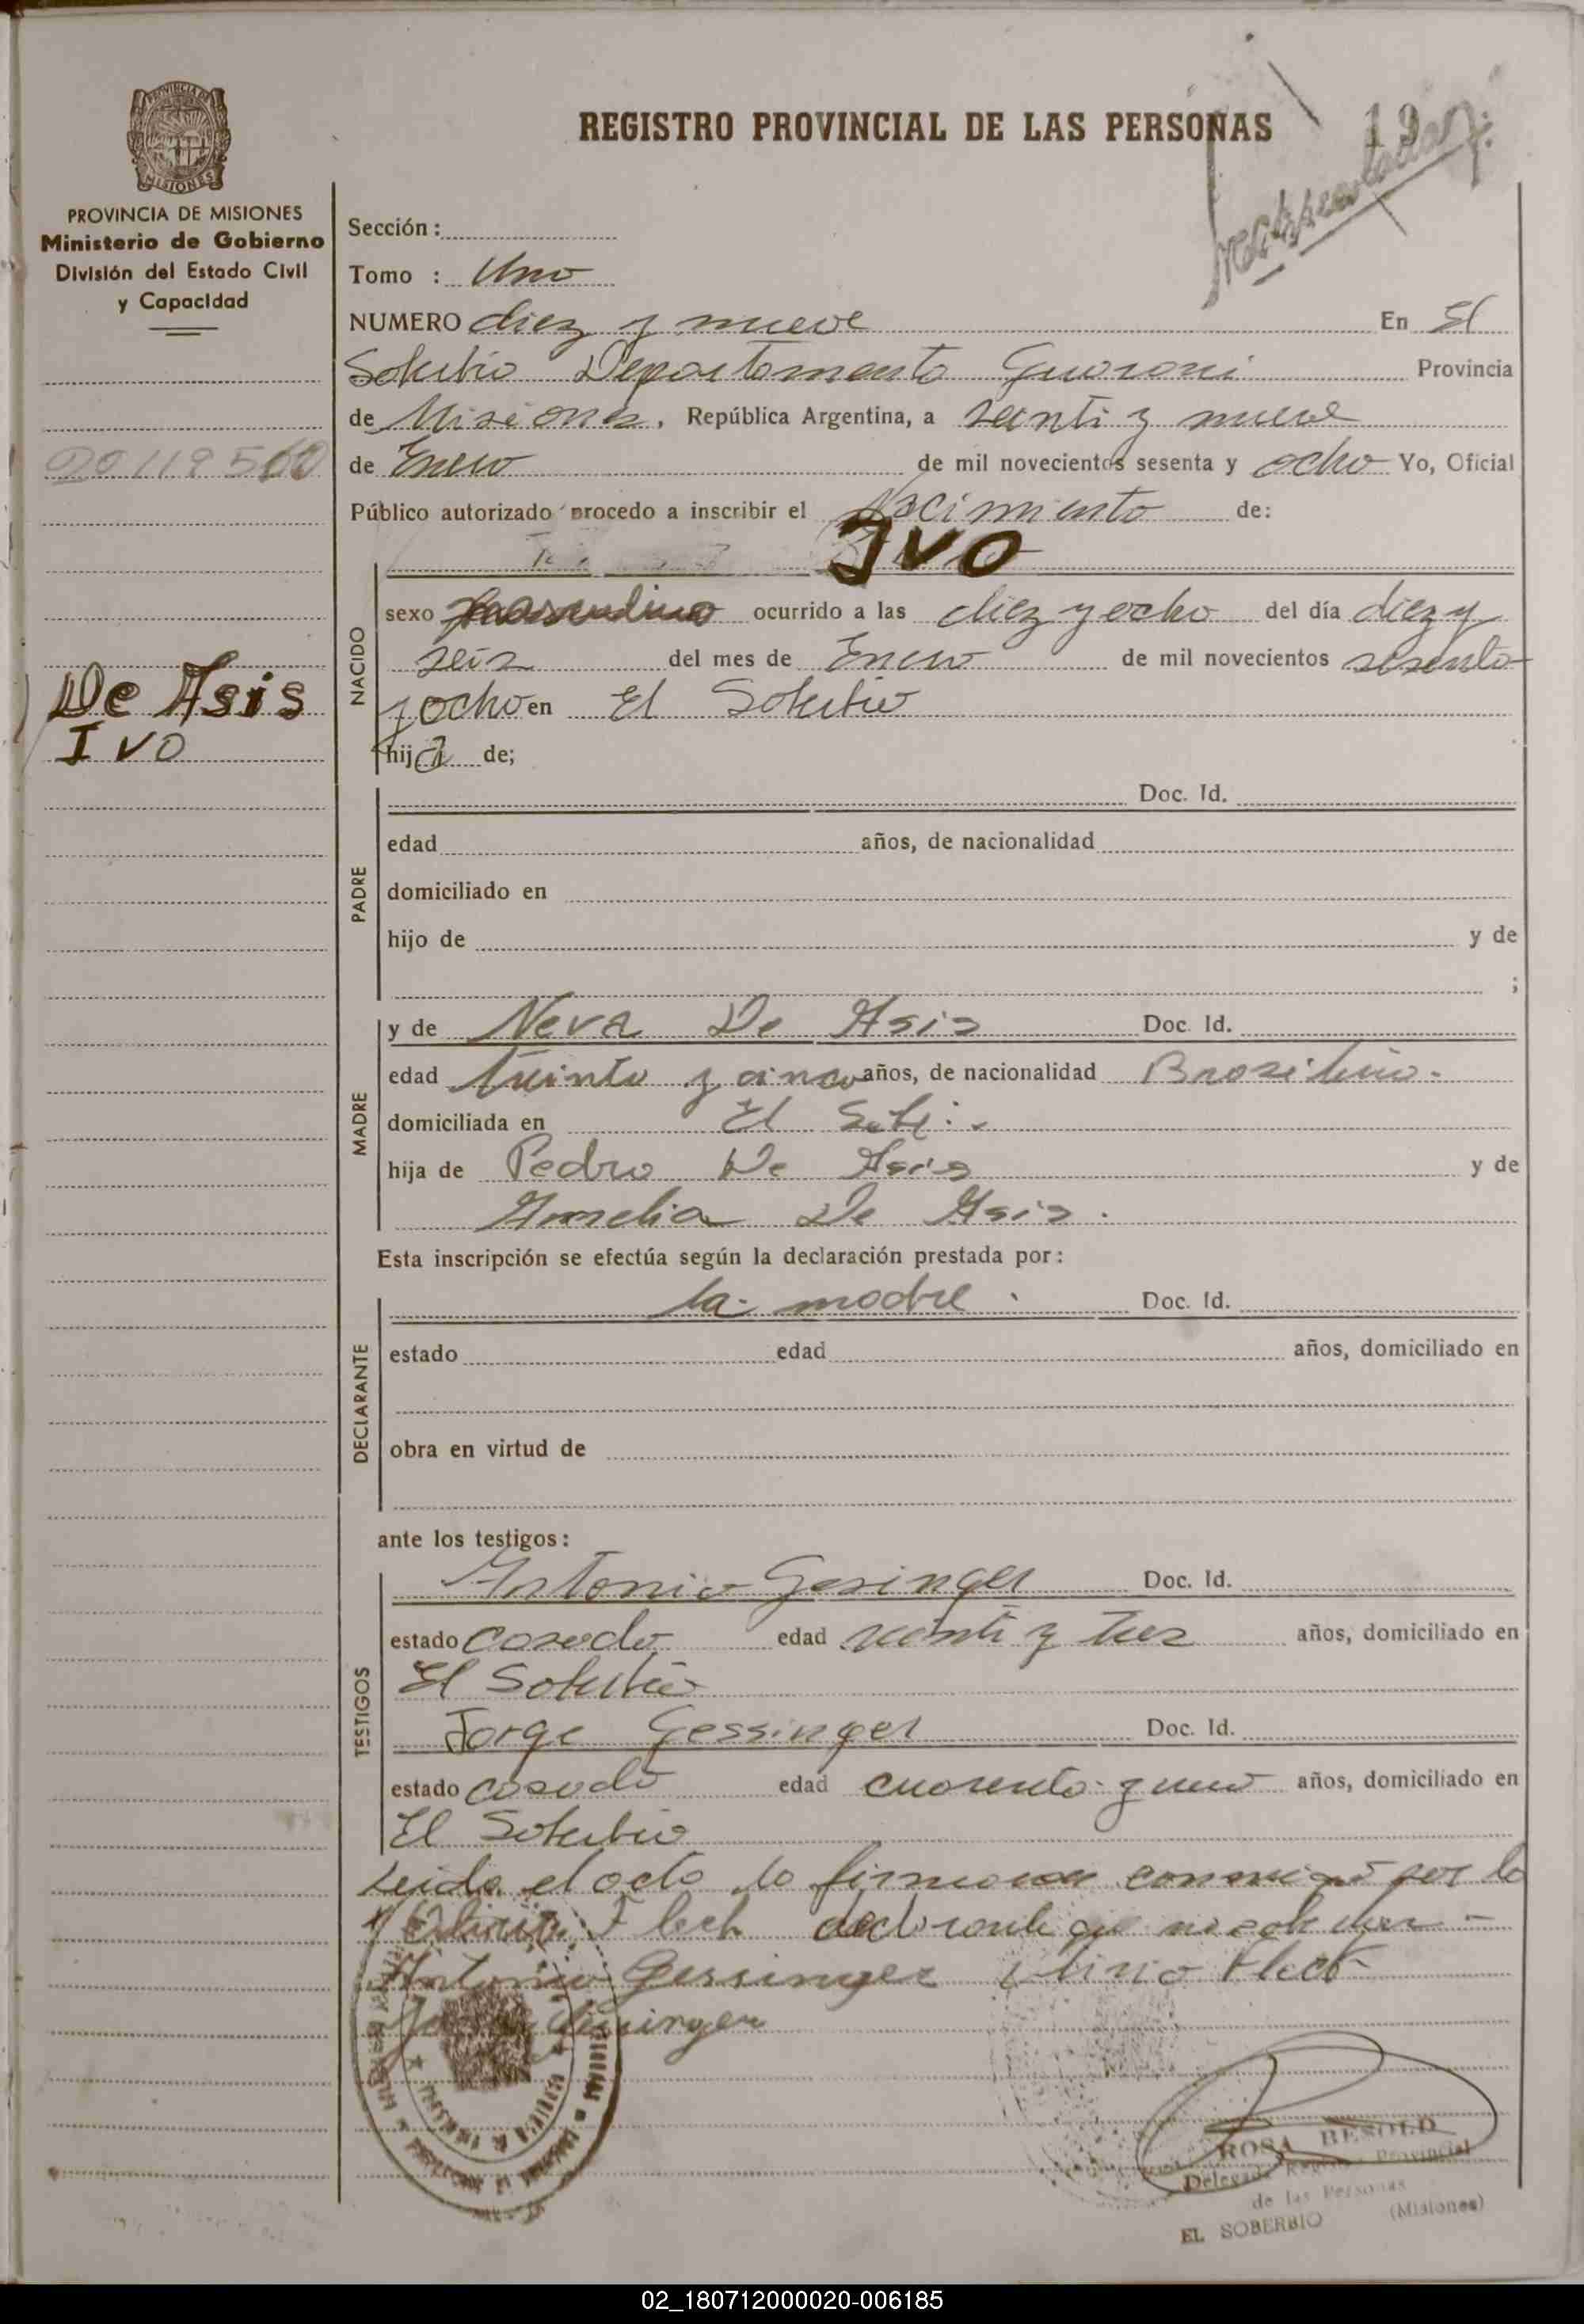 REGISTRO PROVINCIAL DE LAS PERSONAS
19
PROVINCIA DE MISIONES
Ministerio de Gobierno
División del Estado Civil
y Capacidad
20 119 560
De Asis
IVO
Sección:
Tomo : Uno
NUMERO diez y nueve En El
Soberbio Departamento Guarani Provincia
de Misiones, República Argentina, a veinti y nueve
de Enero de mil novecientos sesenta y ocho Yo, Oficial
Público autorizado procedo a inscribir el Nacimiento de:
IVO
NACIDO
sexo masculino ocurrido a las diez y ocho del día diez y
seis del mes de Enero de mil novecientos sesenta
y ocho en El Soberbio
hijo de;
PADRE
Doc. Id.
edad años, de nacionalidad
domiciliado en
hijo de y de
;
MADRE
y de Neva De Asis Doc. Id.
edad treinta y cinco años, de nacionalidad Brasilera.
domiciliada en El
hija de Pedro De Asis y de
Amelia De Asis.
Esta inscripción se efectúa según la declaración prestada por:
DECLARANTE
la madre. Doc. Id.
estado edad años, domiciliado en
obra en virtud de
ante los testigos:
TESTIGOS
Antonio Gesinger Doc. Id.
estado casado edad veinti y tres años, domiciliado en
El Soberbio
Jorge Gessinger Doc. Id.
estado casado edad cuarenta y uno años, domiciliado en
El Soberbio
Leida el acta la firmaron conmigo por la
Flech declarante que no sabe
Antonio Gessinger Flech
ROSA BESOLD
Delegada Registro Provincial
de las Personas
EL SOBERBIO (Misiones)
02_180712000020-006185